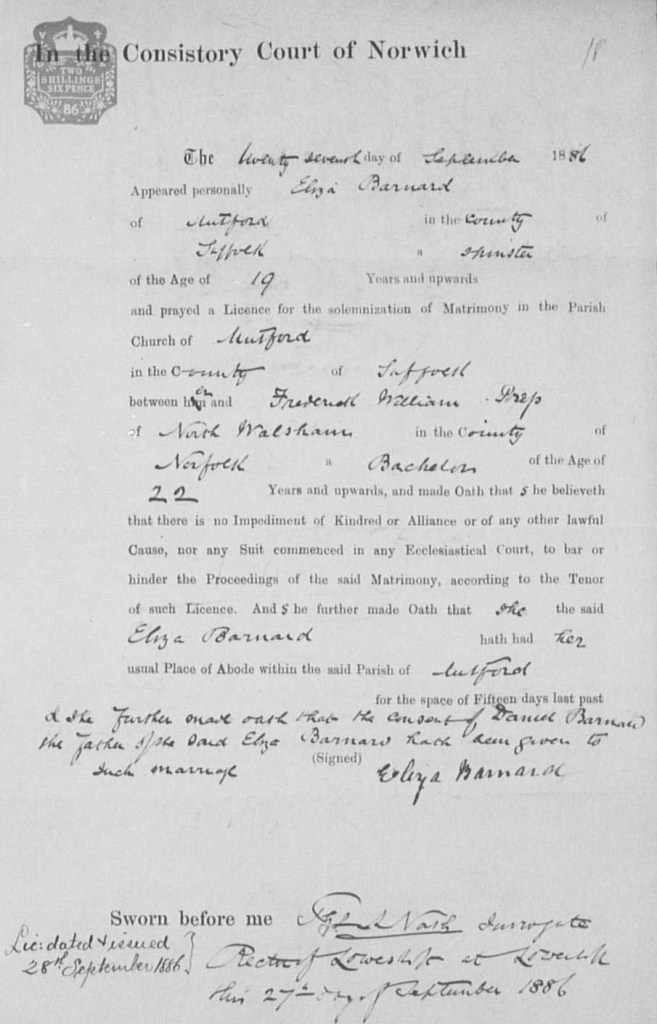 In the Consistory Court of Norwich
18
TWO
SHILLINGS
SIX PENCE
86
The twenty seventh day of September 1886
Appeared personally Eliza Barnard
of Mutford in the County of
Suffolk a spinster
of the Age of 19 Years and upwards
and prayed a Licence for the solemnization of Matrimony in the Parish
Church of Mutford
in the County of Suffolk
between her and Frederick William
of North Walsham in the County of
Norfolk a Bachelor of the Age of
22 Years and upwards, and made Oath that s he believeth
that there is no Impediment of Kindred or Alliance or of any other lawful
Cause, nor any Suit commenced in any Ecclesiastical Court, to bar or
hinder the Proceedings of the said Matrimony, according to the Tenor
of such Licence. And s he further made Oath that she the said
Eliza Barnard hath had her
usual Place of Abode within the said Parish of Mutford
for the space of Fifteen days last past
& she further made oath that the consent of Daniel Barnard
the father of the said Eliza Barnard hath been given to
such marriage
(Signed) Eliza Barnard
Sworn before me Nash Surrogate
Rector of Lowestoft at Lowestoft
this 27th day of September 1886
Lic: dated & issued
28th September 1886